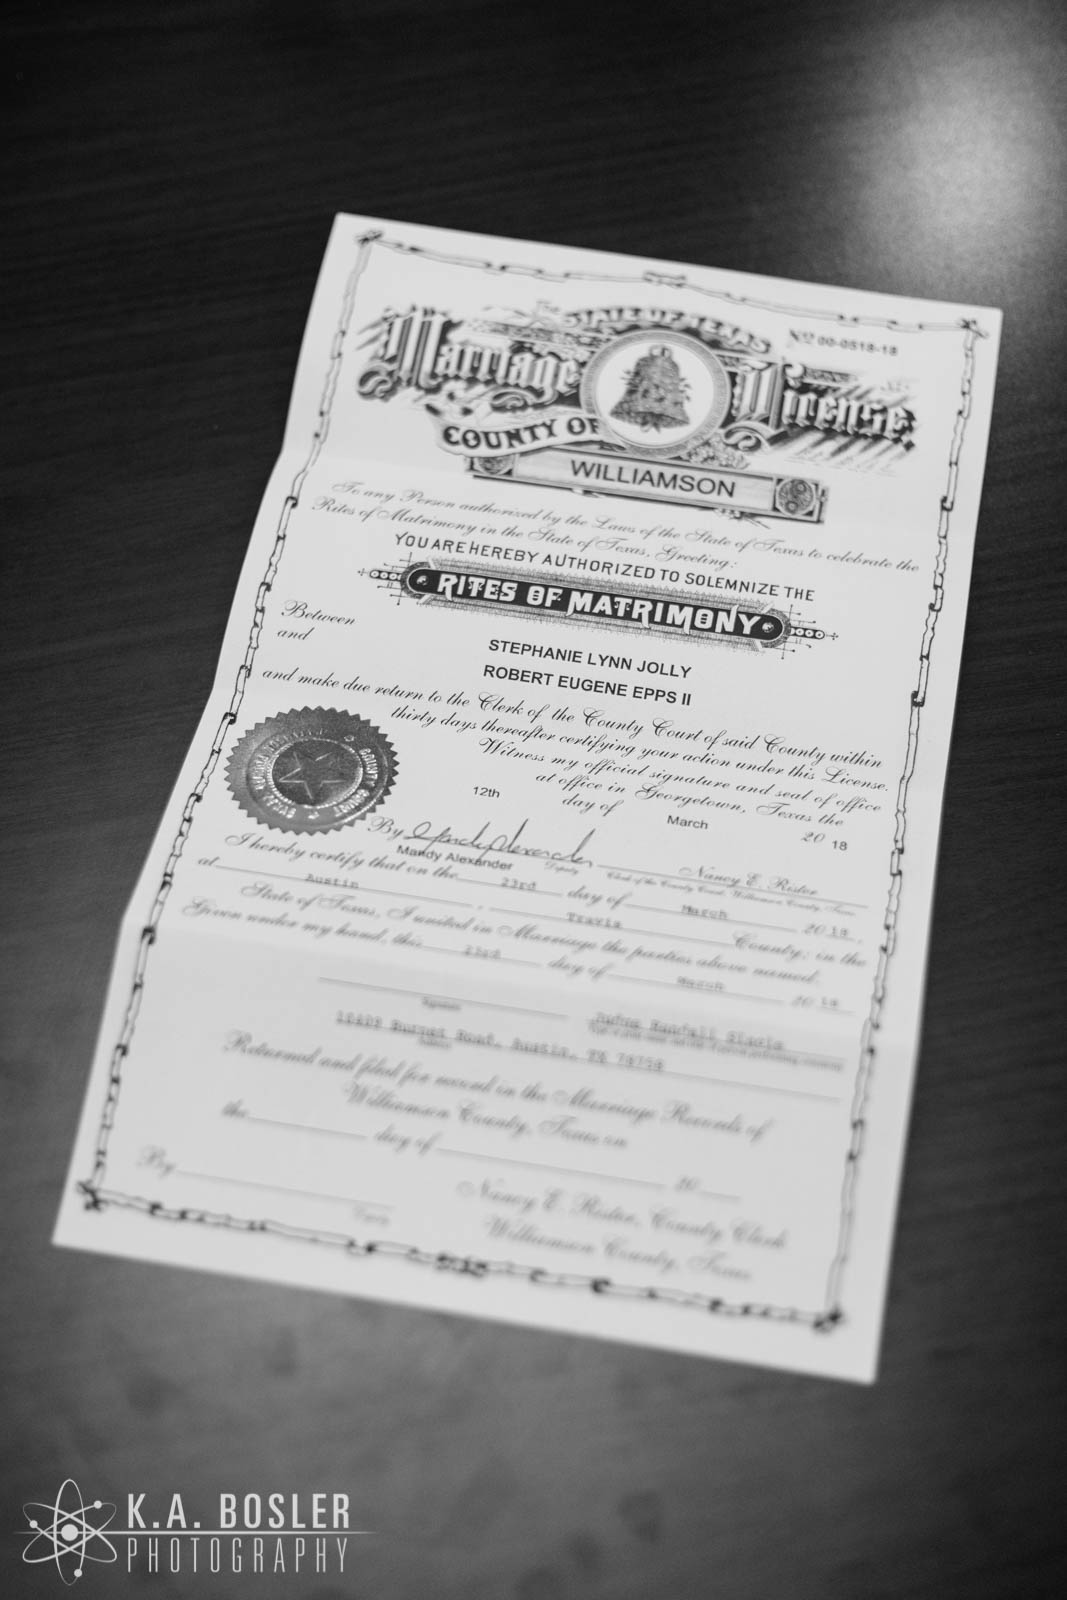 The STATE OF TEXAS
Nº 00-0518-18
Marriage License
COUNTY OF
WILLIAMSON
To any Person authorized by the Laws of the State of Texas to celebrate the
Rites of Matrimony in the State of Texas, Greeting:
YOU ARE HEREBY AUTHORIZED TO SOLEMNIZE THE
RITES OF MATRIMONY
Between STEPHANIE LYNN JOLLY
and ROBERT EUGENE EPPS II
and make due return to the Clerk of the County Court of said County within
thirty days thereafter certifying your action under this License.
Witness my official signature and seal of office
at office in Georgetown, Texas the
12th day of March 20 18
By Mandy Alexander Nancy E. Rister
Mandy Alexander Deputy Clerk of the County Court, Williamson County, Texas
I hereby certify that on the 23rd day of March 20 18,
at Austin, Travis County; in the
State of Texas, I united in Marriage the parties above named.
Given under my hand, this 23rd day of March 20 18
Burnet Road, Austin, TX 78758
Returned and filed for record in the Marriage Records of
Williamson County, Texas on
the day of 20
By
Nancy E. Rister, County Clerk
Williamson County, Texas
K.A. BOSLER
PHOTOGRAPHY